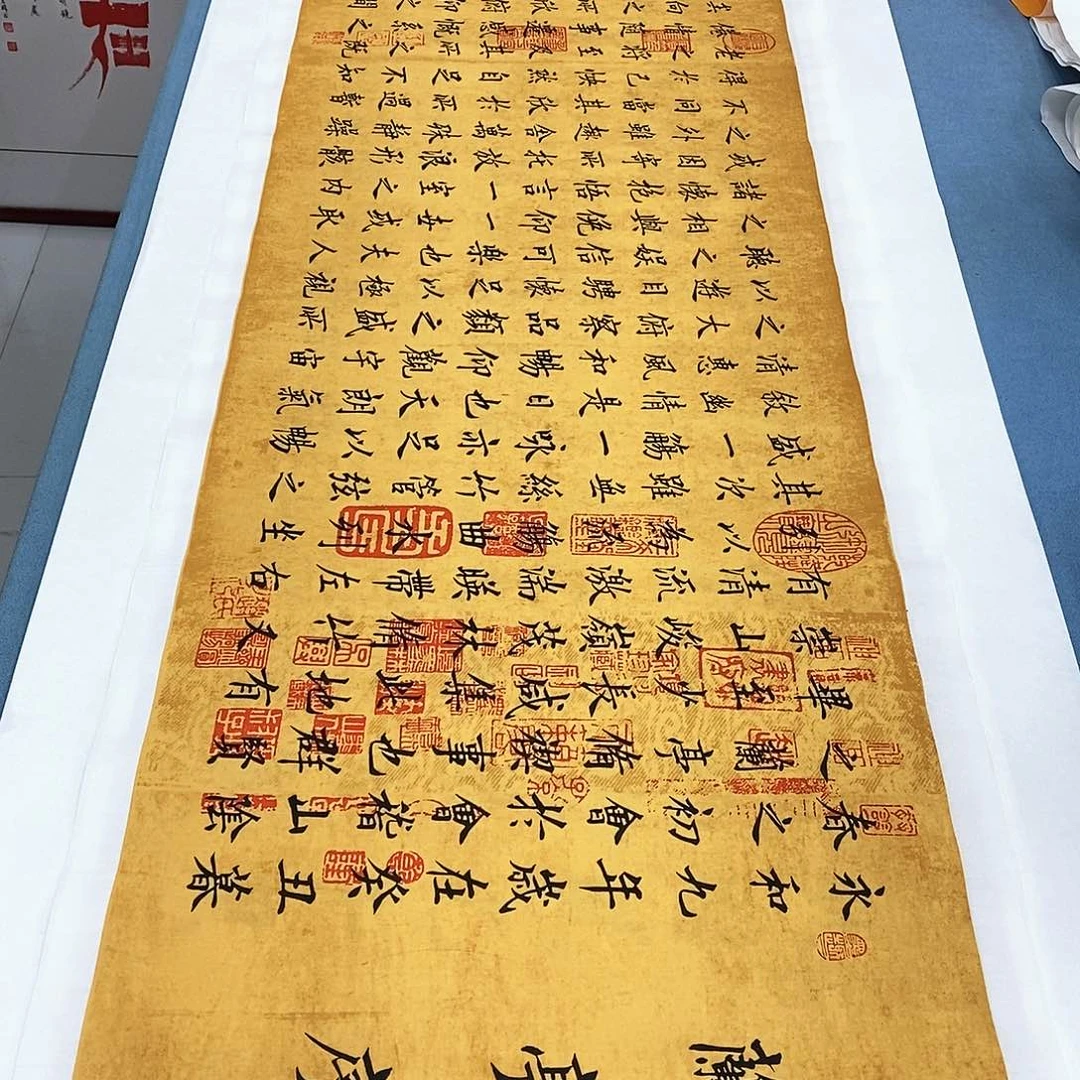 蘭亭序
永和九年歲在癸丑暮
春之初會於會稽山陰
之蘭亭脩禊事也羣賢
畢至少長咸集此地有
崇山峻嶺茂林脩竹又
有清流激湍暎帶左右
以為觴曲水列坐
其次雖無絲竹管弦之
盛一觴一詠亦足以暢
敘幽情是日也天朗氣
清惠風和暢仰觀宇宙
之大俯察品類之盛所
以遊目騁懷足以極視
聽之娛信可樂也夫人
之相與俯仰一世或取
諸懷抱悟言一室之內
或因寄所託放浪形骸
之外雖趣舍萬殊靜躁
不同當其欣於所遇暫
得於己怏然自足不知
老之將至及其所之既
惓情隨事遷感慨係之
向之所欣俛仰之間